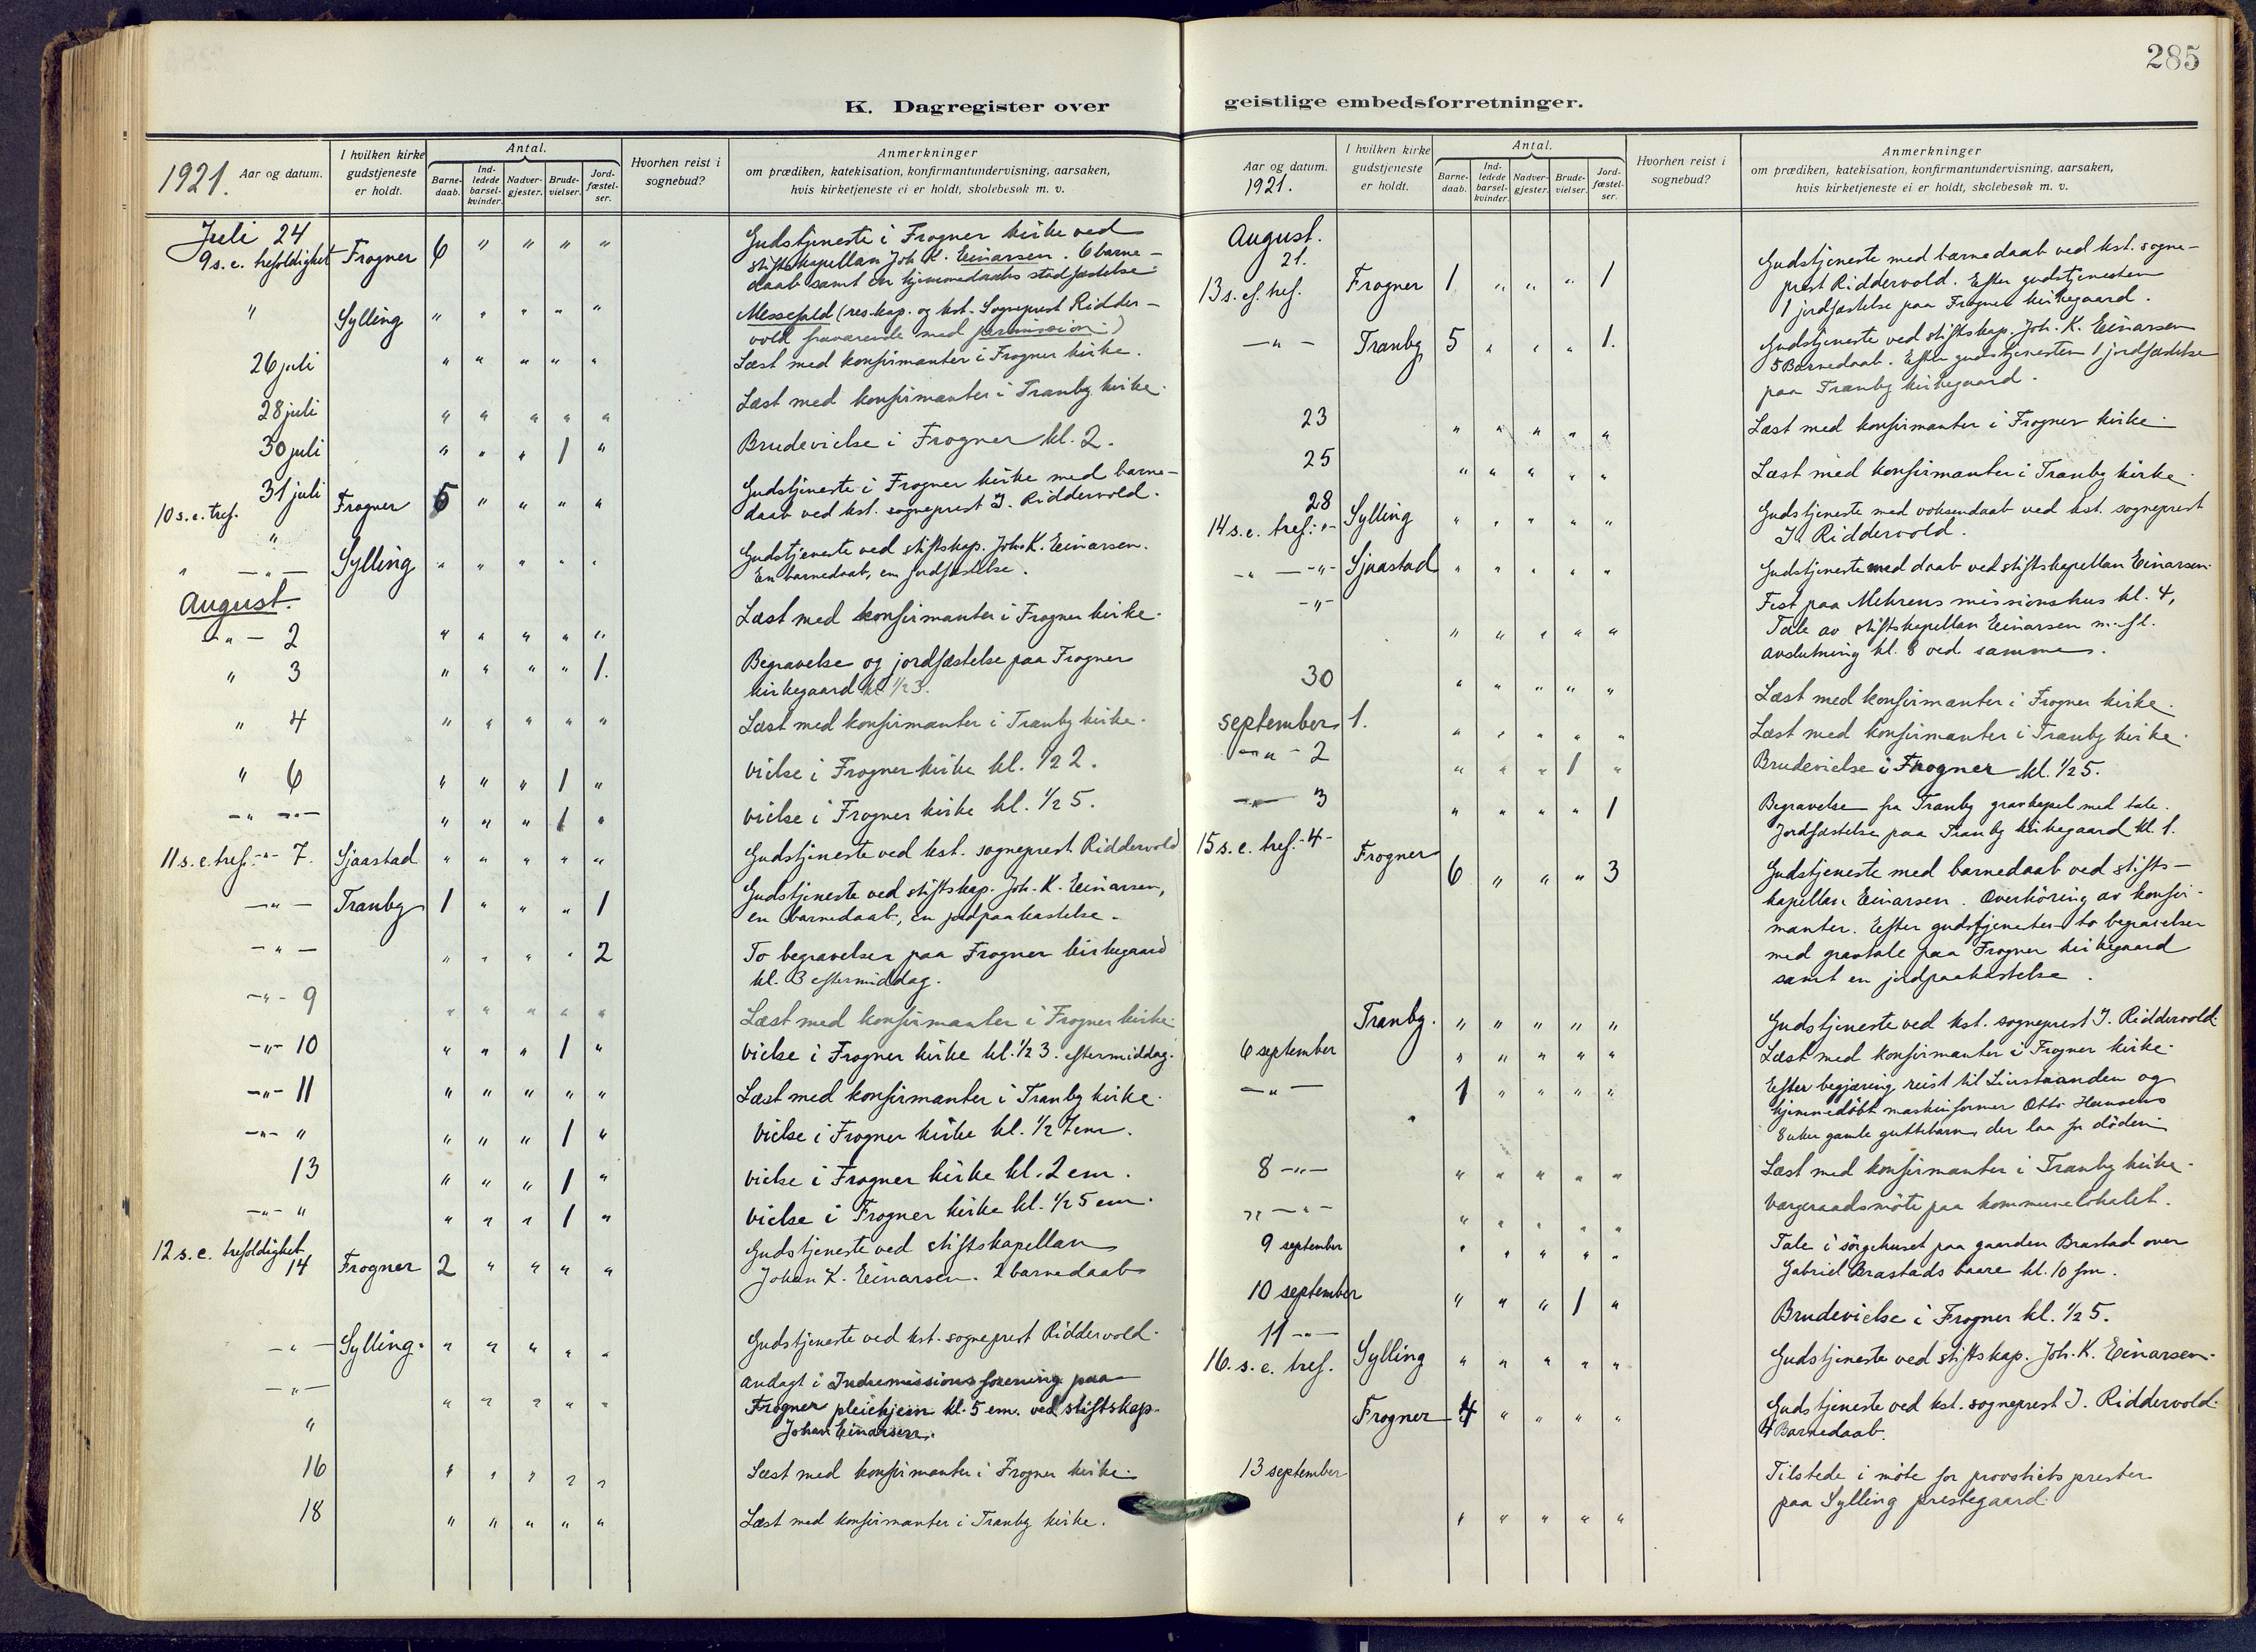 285
K. Dagregister over
geistlige embedsforretninger.
1921. Aar og datum.
I hvilken kirke
gudstjeneste
er holdt.
Antal.
Barne-
daab.
Ind-
ledede
barsel-
kvinder.
Nadver-
gjester.
Brude-
vielser.
Jord-
fæstel-
ser.
Hvorhen reist i
sognebud?
Anmerkninger
om prædiken, katekisation, konfirmantundervisning, aarsaken,
hvis kirketjeneste ei er holdt, skolebesøk m. v.
Juli 24
9 s. e. trefoldighet Frogner 6 " " " " Gudstjeneste i Frogner kirke ved
stiftskapellan Joh. K. Einarsen. 6 barne-
daab samt en hjemmedaabs stadfæstelse.
" Sylling " " " " " Messefald (res. kap. og kst. Sogneprest Ridder-
vold fraværende med permission.)
26 juli " " " " " Læst med konfirmanter i Frogner kirke.
28 juli " " " " " Læst med konfirmanter i Tranby kirke.
30 juli " " " 1 " Brudevielse i Frogner kl. 2.
31 juli
10 s. e. tref. Frogner 5 " " " " Gudstjeneste i Frogner kirke med barne-
daab ved kst. sogneprest J. Riddervold.
" — " — Sylling " " " " " Gudstjeneste ved stiftskap. Joh. K. Einarsen.
En barnedaab, en jordfæstelse.
August.
— " — 2 " " " " " Læst med konfirmanter i Frogner kirke.
" 3 " " " " 1. Begravelse og jordfæstelse paa Frogner
kirkegaard kl. 1/2 3.
" 4 " " " " " Læst med konfirmanter i Tranby kirke.
" 6 " " " 1 " Vielse i Frogner kirke kl. 1/2 2.
— " — " — " " " 1 " Vielse i Frogner kirke kl. 1/2 5.
11 s. e. tref. — " — 7. Sjaastad " " " " " Gudstjeneste ved kst. sogneprest Riddervold
— " — Tranby 1 " " " 1 Gudstjeneste ved stiftskap. Joh. K. Einarsen,
en barnedaab, en jordpaakastelse.
— " — " " " " 2 To begravelser paa Frogner kirkegaard
kl. 3 eftermiddag.
— " — 9 " " " " " Læst med konfirmanter i Frogner kirke.
— " — 10 " " " 1 " Vielse i Frogner kirke kl. 1/2 3. eftermiddag.
— " — 11 " " " " " Læst med konfirmanter i Tranby kirke.
— " — " " " " 1 " Vielse i Frogner kirke kl. 1/2 7 em.
13 " " " 1 " Vielse i Frogner kirke kl. 2 em.
— " — " " " " 1 " Vielse i Frogner kirke kl. 1/2 5 em.
12 s. e. trefoldighet
14 Frogner 2 " " " " Gudstjeneste ved stiftskapellan
Johan K. Einarsen. 2 barnedaab
— " — Sylling. " " " " " Gudstjeneste ved kst. sogneprest Riddervold.
— " — " " " " " Andagt i Indremissionsforening paa
Frogner pleiehjem kl. 5 em. ved stiftskap.
" Johan Einarsen.
16 " " " " " Læst med konfirmanter i Frogner kirke.
18 " " " " " Læst med konfirmanter i Tranby kirke.
Aar og datum.
1921.
I hvilken kirke
gudstjeneste
er holdt.
Antal.
Barne-
daab.
Ind-
ledede
barsel-
kvinder.
Nadver-
gjester.
Brude-
vielser.
Jord-
fæstel-
ser.
Hvorhen reist i
sognebud?
Anmerkninger
om prædiken, katekisation, konfirmantundervisning, aarsaken,
hvis kirketjeneste ei er holdt, skolebesøk m. v.
August.
21.
13 s. ef. tref. Frogner 1 " " " 1 Gudstjeneste med barnedaab ved kst. sogne-
prest Riddervold. Efter gudstjenesten
1 jordfæstelse paa Frogner kirkegaard.
— " — Tranby 5 " " " 1. Gudstjeneste ved stiftskap. Joh. K. Einarsen
5 Barnedaab. Efter gudstjenesten 1 jordfæstelse
paa Tranby kirkegaard.
23 " " " " " Læst med konfirmanter i Frogner kirke.
25 " " " " " Læst med konfirmanter i Tranby kirke.
28
14 s. e. tref. " Sylling " " " " " Gudstjeneste med voksendaab ved kst. sogneprest
J. Riddervold.
— " — " — Sjaastad " " " " " Gudstjeneste med daab ved stiftskapellan Einarsen.
— " — " " " " " Fest paa Mehrens missionshus kl. 4,
Tale av stiftskapellan Einarsen m. fl.
Avslutning kl. 8 ved samme.
30 " " " " " Læst med konfirmanter i Frogner kirke.
September 1. " " " " " Læst med konfirmanter i Tranby kirke.
— " — 2 " " " 1 " Brudevielse i Frogner kl. 1/2 5.
— " — 3 " " " " 1 Begravelse fra Tranby gravkapel med tale.
Jordfæstelse paa Tranby kirkegaard kl. 1.
15 s. e. tref. - 4 - Frogner 6 " " " 3 Gudstjeneste med barnedaab ved stifts-
kapellan Einarsen. Overhöring av konfir-
manter. Efter gudstjenesten to begravelser
med gravtale paa Frogner kirkegaard
samt en jordpaakastelse.
Tranby. " " " " " Gudstjeneste ved kst. sogneprest J. Riddervold.
6 september " " " " " Læst med konfirmanter i Frogner kirke.
— " — 1 " " " " Efter begjæring reist til Lierstranden og
hjemmedöbt maskinformer Otto Hansens
8 uker gamle guttebarn, der laa for döden
8 — " — " " " " " Læst med konfirmanter i Tranby kirke.
" — " — " " " " " Værgeraadsmöte paa kommunelokalet.
9 september " " " " " Tale i sörgehuset paa gaarden Brastad over
Gabriel Brastads baare kl. 10 fm.
10 september " " " 1 " Brudevielse i Frogner kl. 1/2 5.
11 — " —
16. s. e. tref. Sylling " " " " " Gudstjeneste ved stiftskap. Joh. K. Einarsen.
Frogner 4 " " " " Gudstjeneste ved kst. sogneprest J. Riddervold.
4 Barnedaab.
13 september " " " " " Tilstede i möte for provstiets prester
paa Sylling prestegaard.